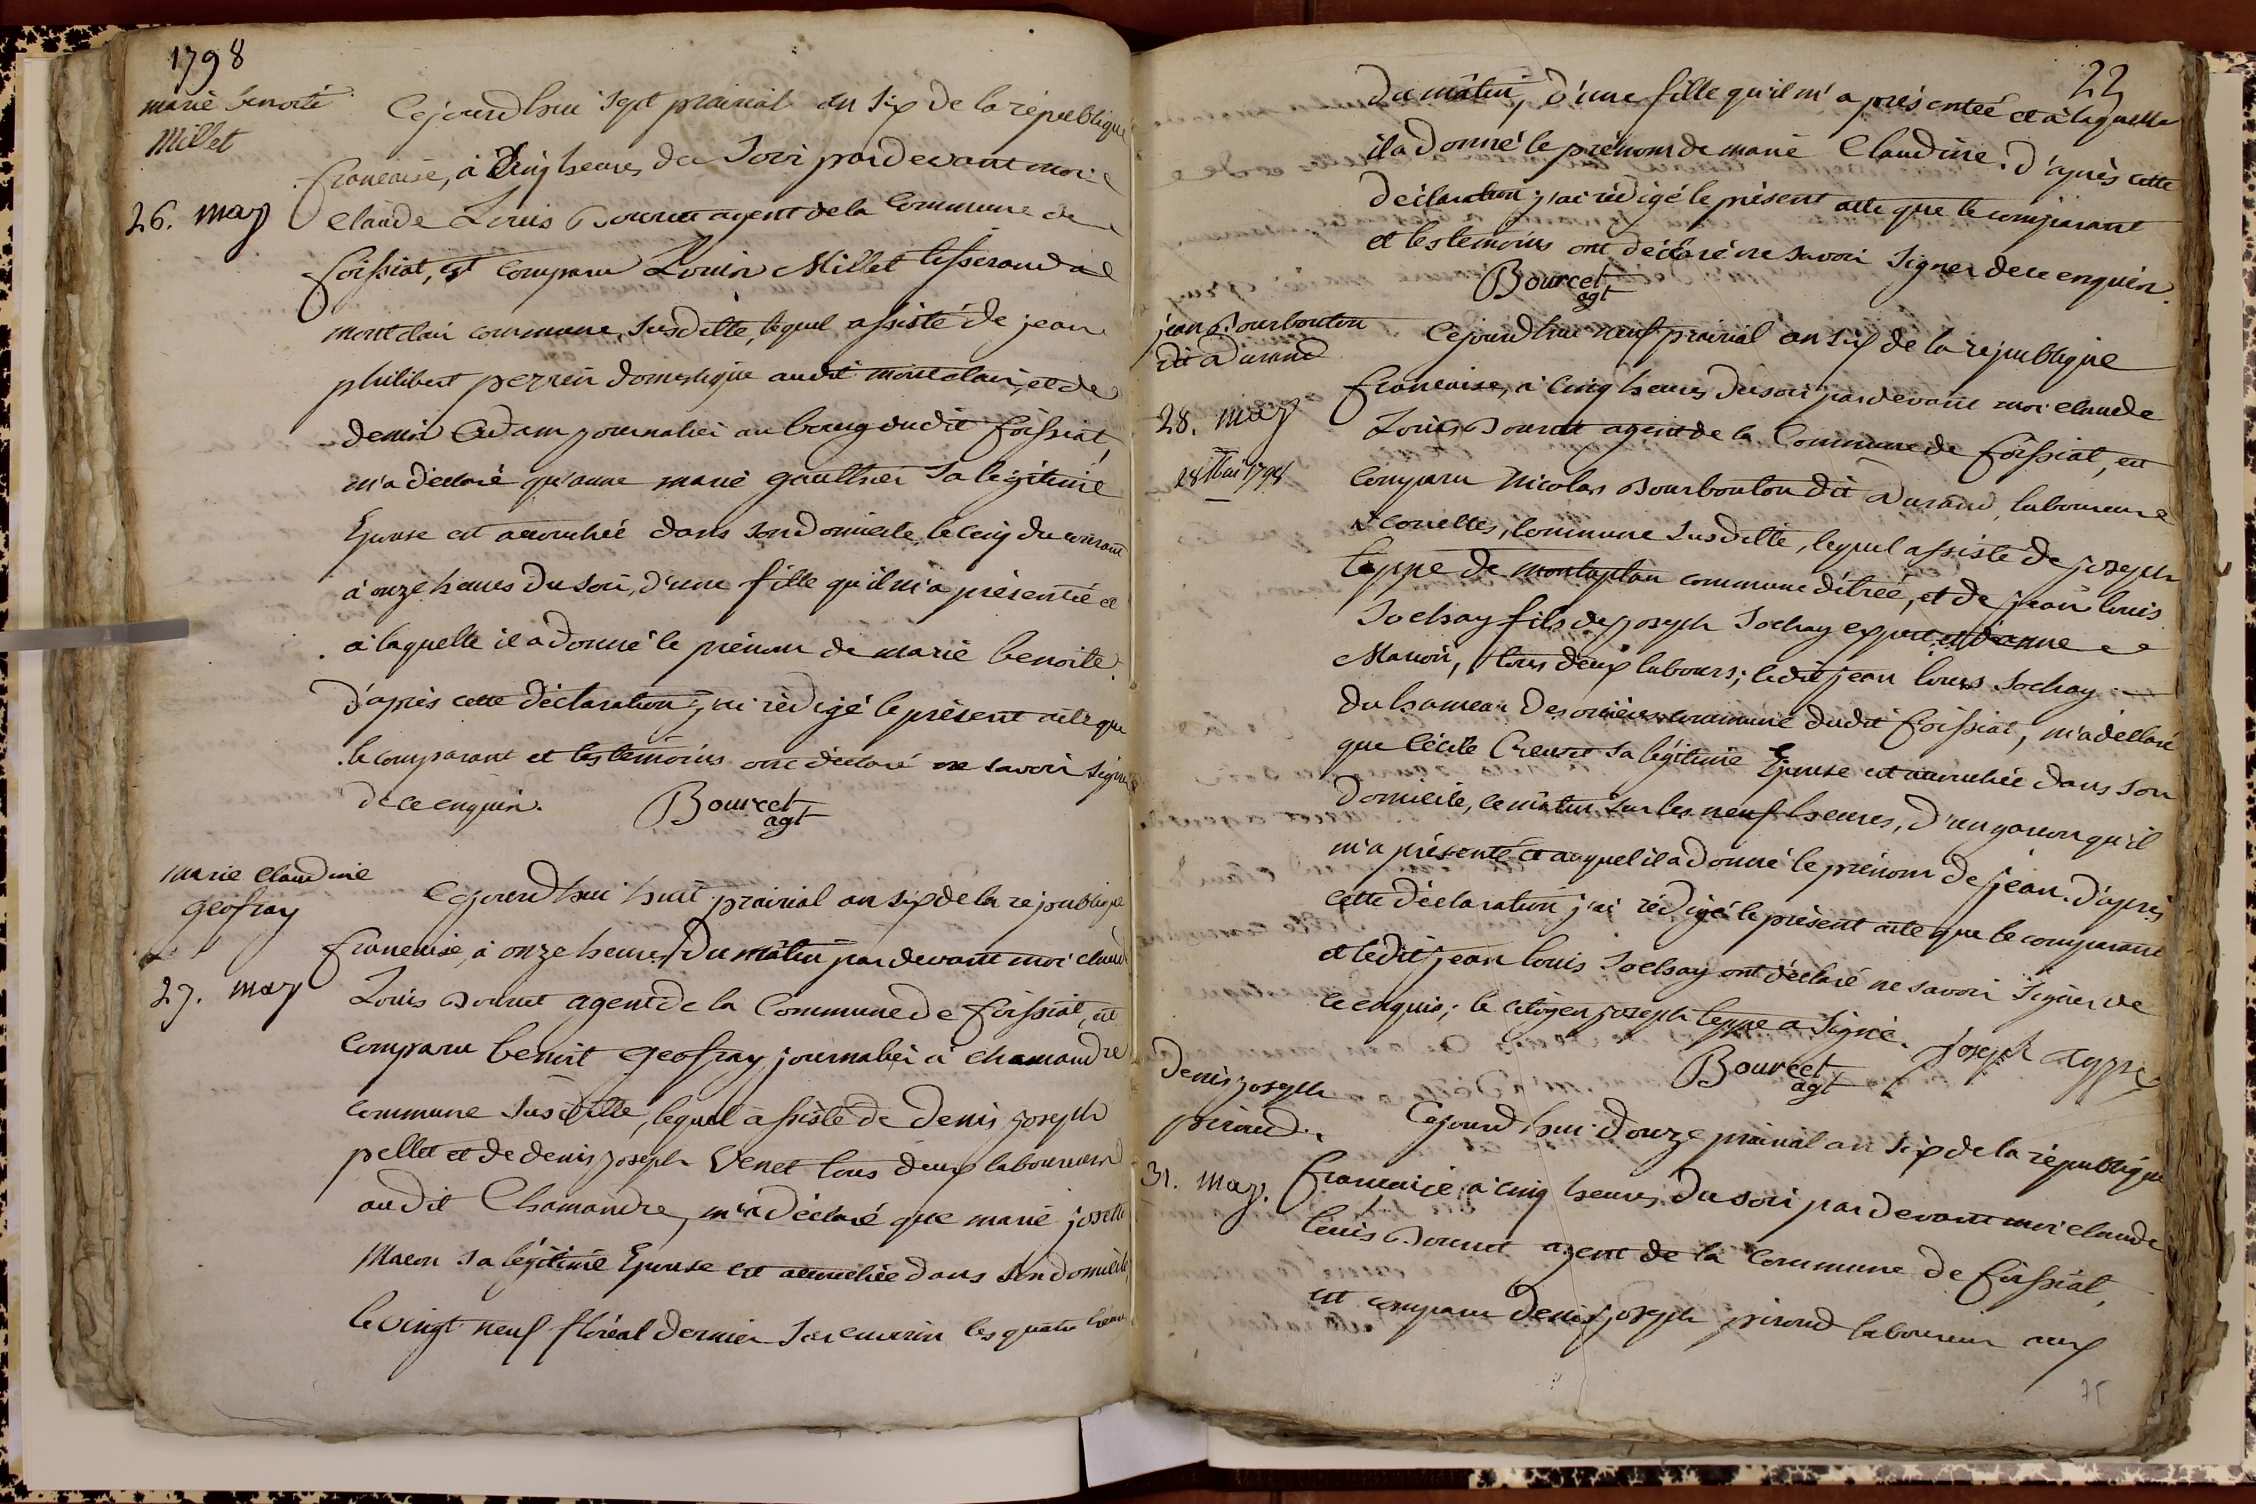 1798
marie benoite
Millet
26. may
Cejourd'hui sept prairial an six de la république
francaise, à Cinq heures du Soir pardevant moi
Claude Louis Bourcet agent de la Commune de
foissiat, est comparu Louis Millet tisserand à
montclair commune susditte, lequel assisté de jean
philibert perrein domestique audit montclair, et de
denis Adam journalier au bourg dudit foissiat,
m'a déclaré qu'anne marie gaulthier sa légitime
Epouse est accouchée dans son domicile le cinq du courant
à onze heures du soir, d'une fille qu'il m'a présentée et
à laquelle il a donné le prénom de marie benoite.
d'après cette déclaration j'ai rédigé le présent acte que
le comparant et les témoins ont déclaré ne savoir signer
de ce enquis.
Bourcet
agt
marie Claudine
geofray
27. may
Cejourd'hui huit prairial an six de la republique
francaise, à onze heures du matin par devant moi claude
Louis Bourcet agent de la Commune de foissiat, est
comparu benoit geofray journalier à chamandre
commune susditte, lequel assisté de Denis joseph
pellet et de denis joseph Venet tous deux laboureurs
audit Chamandre, m'a déclaré que marie josette
Macon sa légitime Epouse est accouchée dans son domicile,
le vingt neuf floréal dernier sur environ les quatre heures
22
du matin, d'une fille qu'il m'a présentée et à laquelle
il a donné le prénom de marie Claudine. d'après cette
déclaration j'ai rédigé le présent acte que le comparant
et les temoins ont déclaré ne savoir signer de ce enquis.
Bourcet
agt
jean Bourbouton
dit Durand
28. may
28 Mai 1798
Cejourd'hui neuf prairial an six de la republique
francaise, à cinq heures du soir pardevant moi claude
Louis Bourcet agent de la Commune de foissiat, est
comparu Nicolas Bourbouton dit Durand, laboureur
à couettes, commune susditte, lequel assisté de joseph
teppe de montaplan commune d'étrée, et de jean louis
Sochay fils de joseph Sochay expert et d'anne
Manon, tous deux labours; ledit jean louis Sochay
du hameau des ornières commune dudit foissiat, m'a déclaré
que Cécile Creuset sa légitime Epouse est accouchée dans son
domicile, ce matin sur les neuf heures, d'un garcon qu'il
m'a présenté et auquel il a donné le prénom de jean. d'après
cette déclaration j'ai rédigé le présent acte que le comparant
et ledit jean louis Sochay ont déclaré ne savoir signer de
ce enquis; le citoyen joseph teppe a signé.
Bourcet
agt
joseph teppe
Denis joseph
piroud.
31. may.
Cejourd'hui douze prairial an six de la république
francaise à cinq heures du soir pardevant moi claude
louis Bourcet agent de la commune de foissiat,
est comparu denis joseph piroud laboureur aux
75